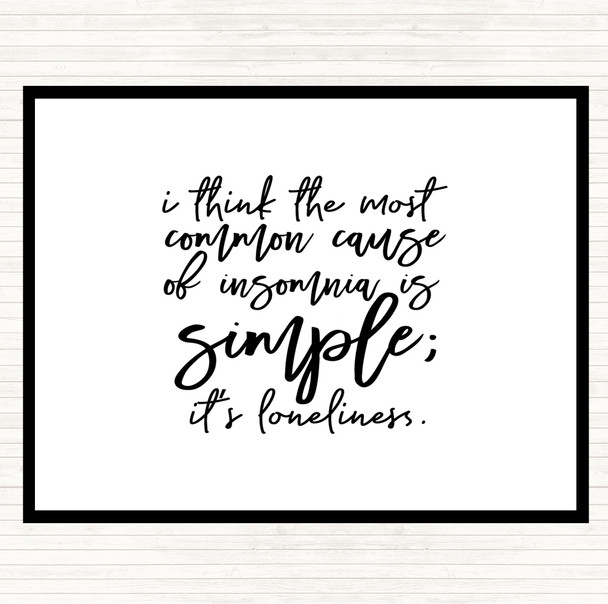 i think the most
common cause
of insomnia is
simple;
it's loneliness.